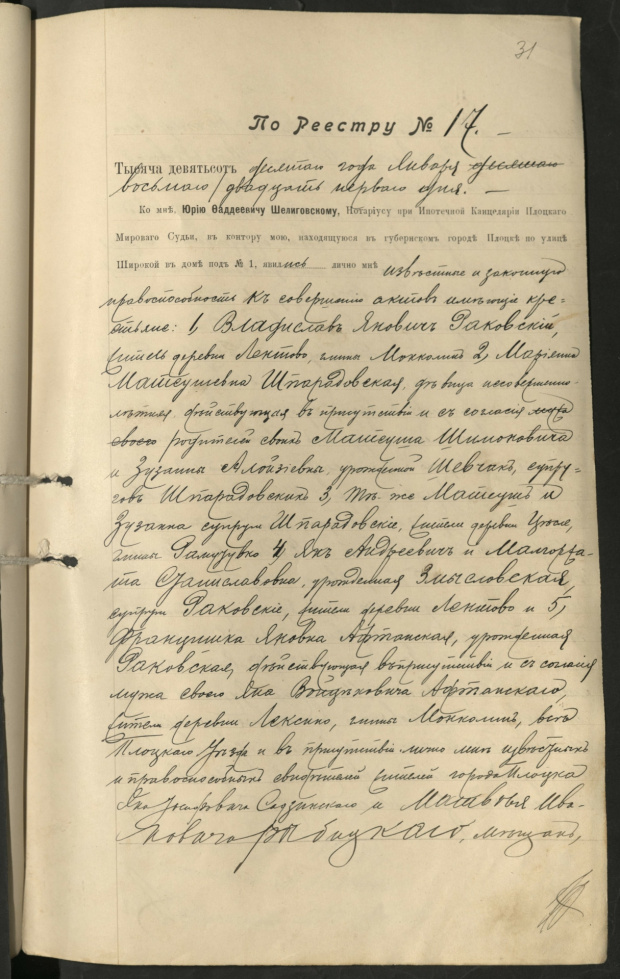 31
По Реестру № 17. —
Тысяча девятьсотъ десятаго года Января десятаго
восьмаго/двадцать перваго дня. —
Ко мнѣ, Юрію Ѳаддеевичу Шелиговскому, Нотаріусу при Ипотечной Канцеляріи Плоцкаго
Мироваго Судьи, въ контору мою, находящуюся въ губернскомъ городѣ Плоцкѣ по улицѣ
Широкой въ домѣ подъ № 1, явились лично мнѣ извѣстные и законную
правоспособность къ совершенію актовъ имѣющіе кре-
стьяне: 1, Владиславъ Яновичъ Раковскій,
житель деревни Лентово, гмины 2, Маріанна
Матеушевна Шпарадовская, дѣвица несовершенно-
лѣтняя, дѣйствующая въ присутствіи и съ согласія мужа
своего родителей своихъ Матеуша Шимоновича
и Зузанны Алойзіевны, урожденной Шевчакъ, супру-
говъ Шпарадовскихъ 3, Тѣ же Матеушъ и
Зузанна супруги Шпарадовскіе, жители деревни
гмины 4, Янъ Андреевичъ и Малгоржа-
та Станиславовна, урожденная Змысловская,
супруги Раковскіе, жители деревни Лентово и 5,
Францишка Яновна Афтанская, урожденная
Раковская, дѣйствующая въ присутствіи и съ согласія
мужа своего Яна Афтанскаго,
жители деревни гмины всѣ
Плоцкаго Уѣзда и въ присутствіи лично мнѣ извѣстныхъ
и правоспособныхъ свидѣтелей жителей города Плоцка
Яна Іосифовича и Матвѣя Ива-
новича Рыбицкаго, мѣщанъ,